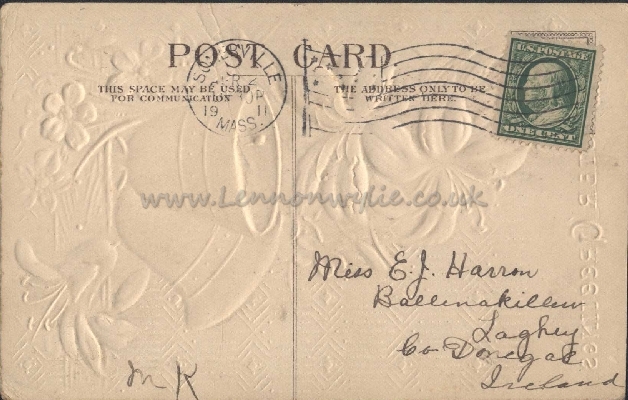 POST CARD.
THIS SPACE MAY BE USED
FOR COMMUNICATION
THE ADDRESS ONLY TO BE
WRITTEN HERE.
MASS.
19 11
U.S. POSTAGE
ONE CENT
www.Lennonwylie.co.uk
Miss E.J. Harron
Ballinakillew
Laghey
Co Donegal
Ireland
M K